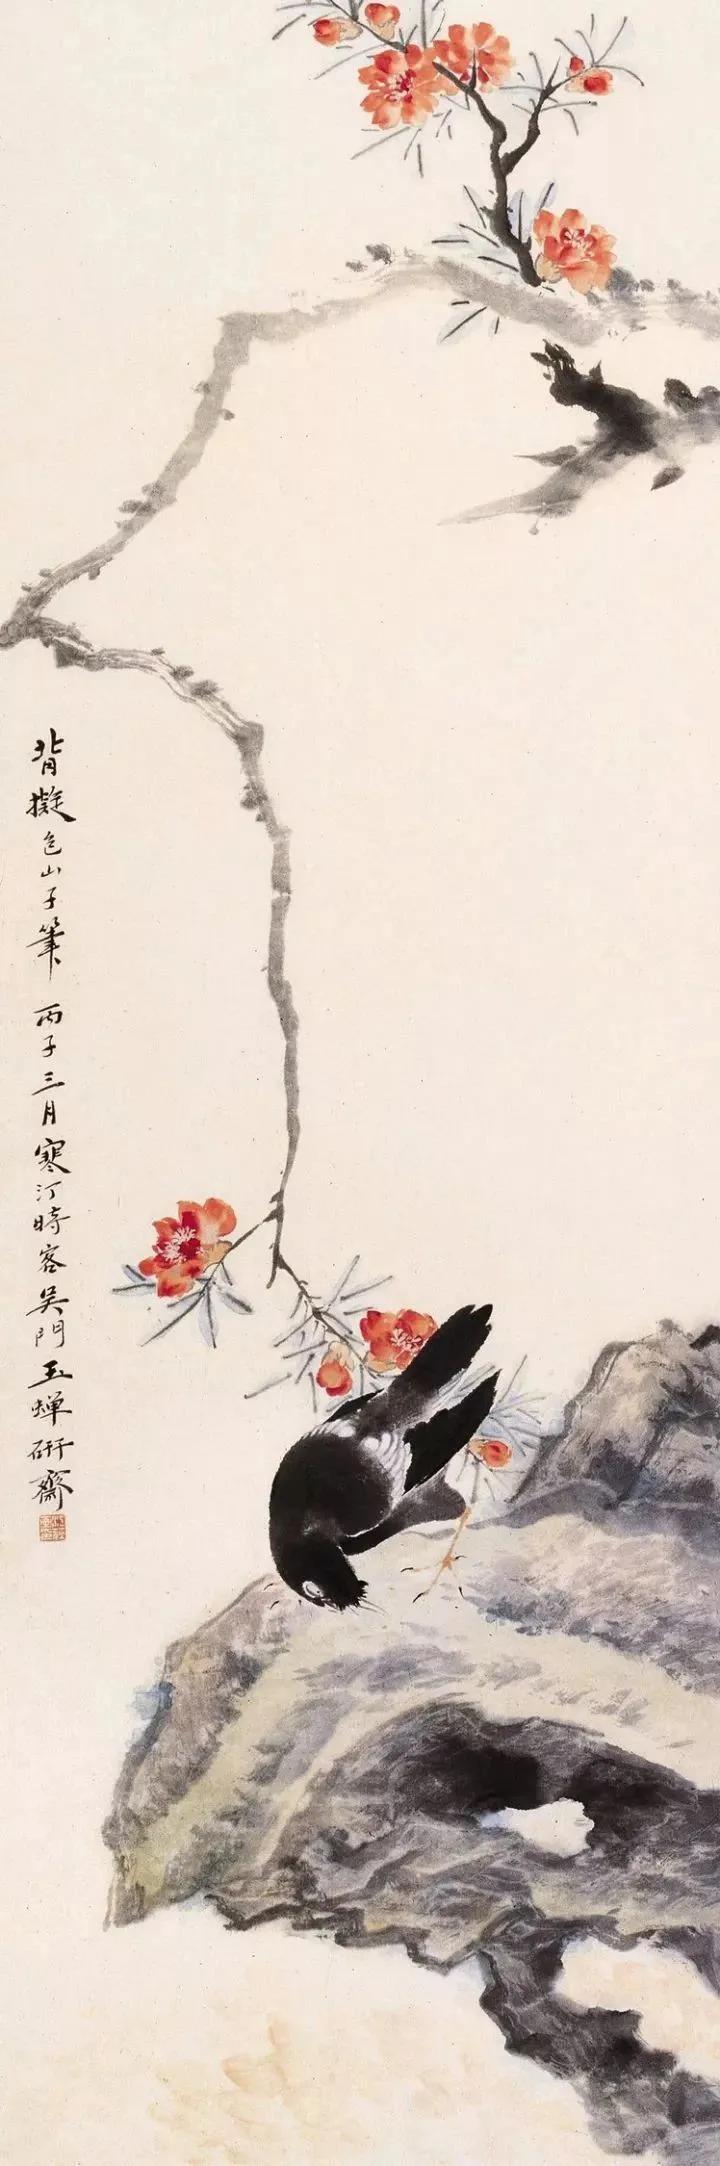 背擬包山子筆 丙子三月寒汀時客吳門玉蟬硏齋